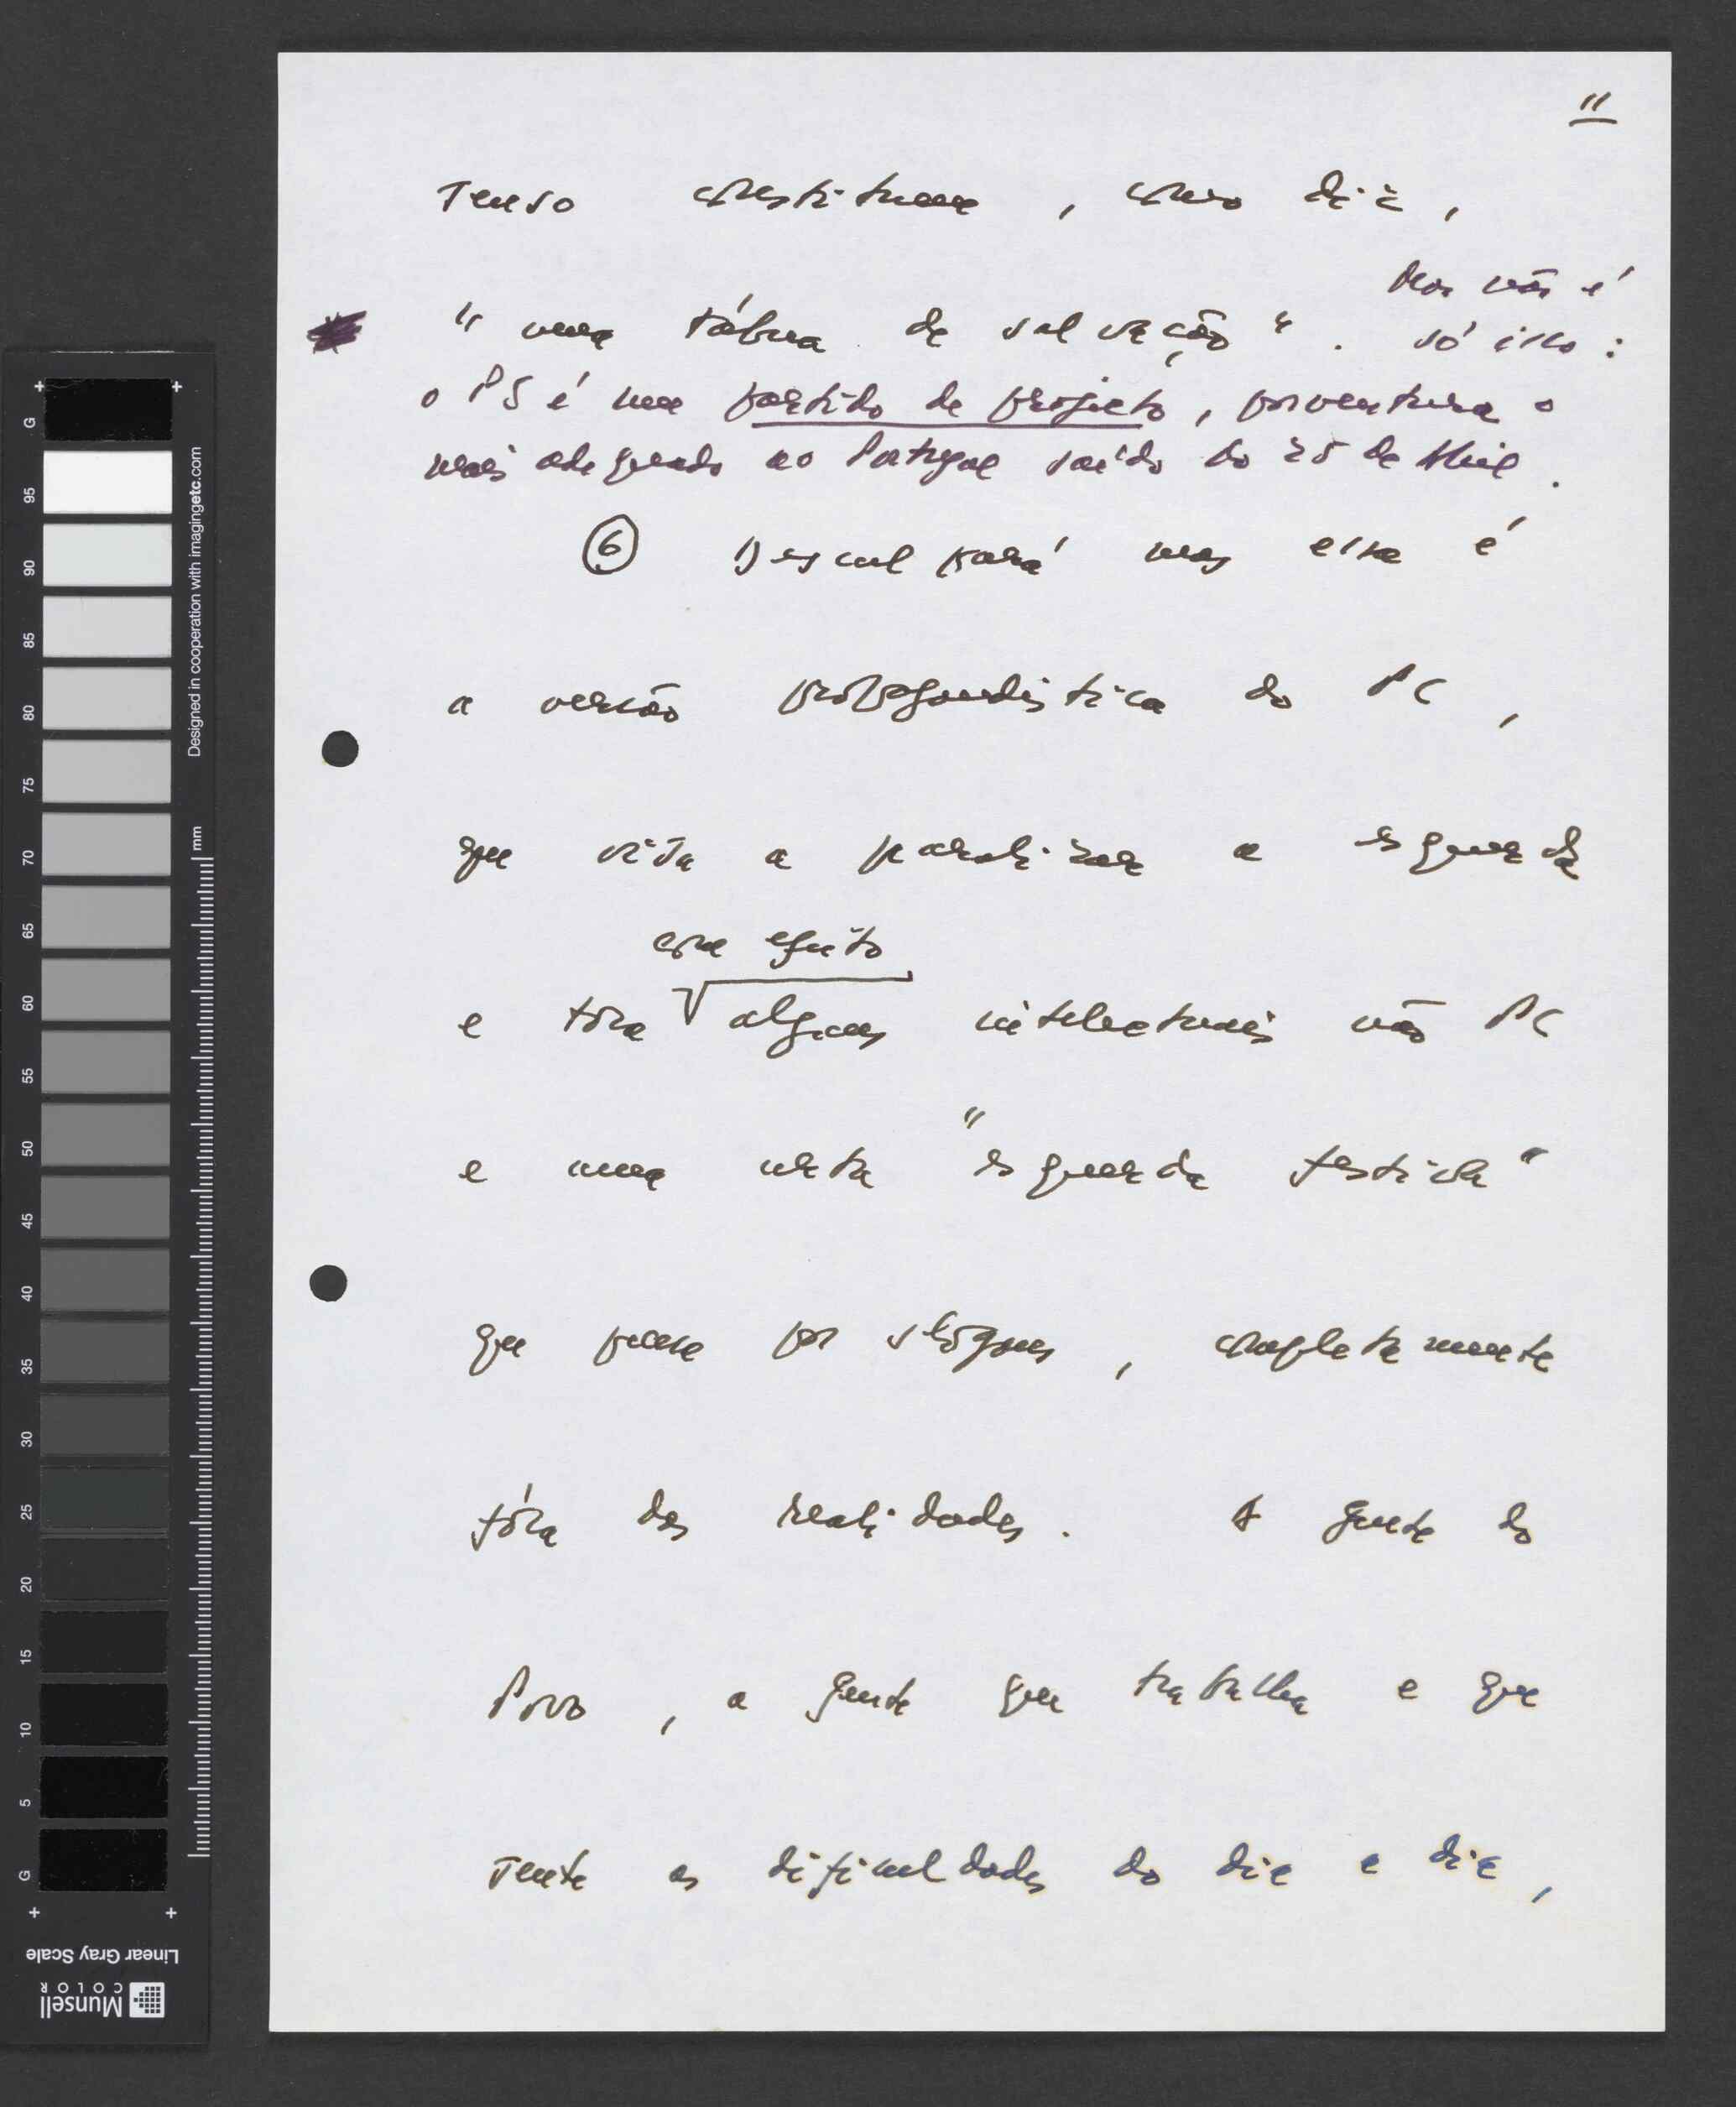 11
senso constituem, como diz,
Mas não é
"uma tábua de salvação". só isso:
o PS é um partido de projecto, porventura o
mais adequado ao Portugal saído do 25 de Abril.
⑥ Desculpará mas essa é
a versão propagandística do PC,
que visa a paralizar a esquerda
com efeito
e tóca alguns intelectuais não PC
e uma certa "esquerda festiva"
que pensa por slógans, completamente
fóra das realidades. A gente do
Povo, a gente que trabalha e que
sente as dificuldades do dia a dia,
G 95 90 85 80 75 70 65 60 55 50 45 40 35 30 25 20 15 10 5 G
Designed in cooperation with imagingetc.com
mm
Linear Gray Scale
Munsell
COLOR